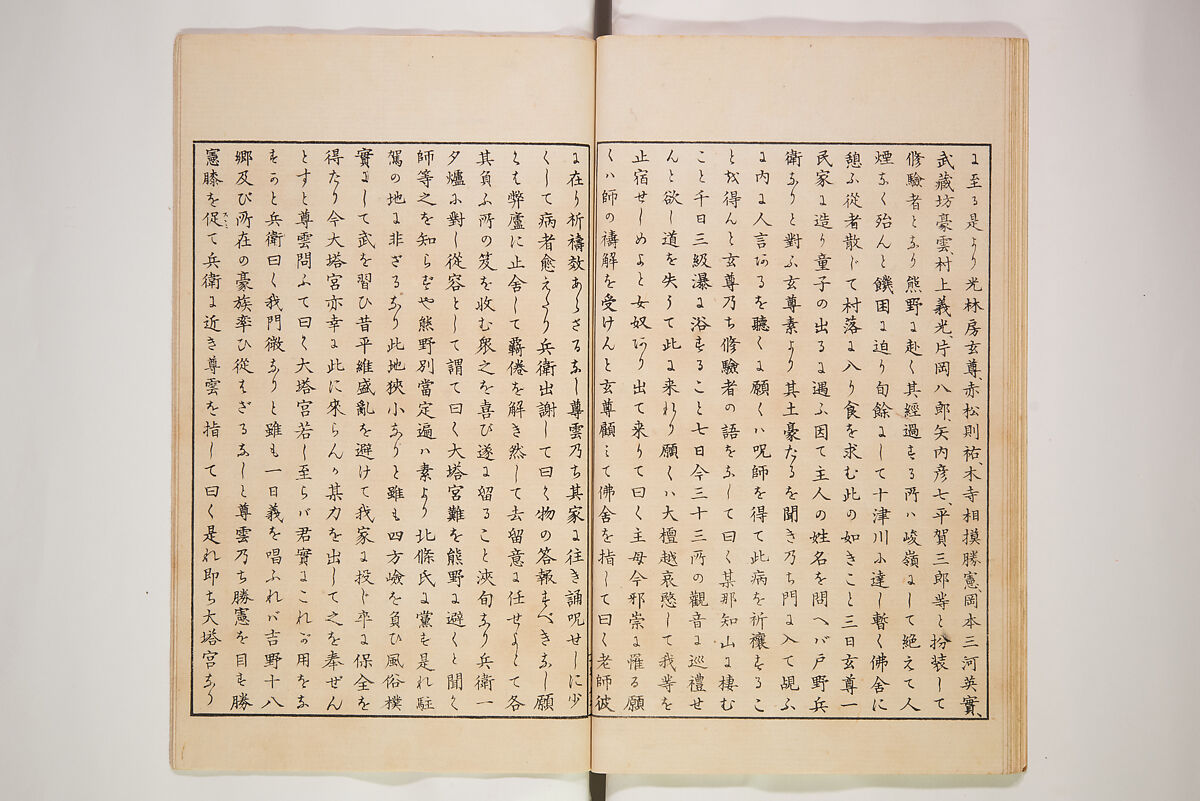 に至る是より光林房玄尊、赤松則祐、木寺相摸勝憲、岡本三河英實、
武藏坊豪雲、村上義光、片岡八郎矢内彦七、平賀三郎等と扮装して
修驗者となり熊野に赴く其經過する所ハ峻嶺にして絶えて人
煙なく殆んと饑困に迫り旬餘にして十津川に達し暫く佛舍に
憩ふ從者散じて村落に入り食を求む此の如きこと三日玄尊一
民家に造り童子の出るに遇ふ因て主人の姓名を問へバ戸野兵
衛なりと對ふ玄尊素より其土豪たるを聞き乃ち門に入て覘ふ
に内に人言あるを聽くに願くハ呪師を得て此病を祈禳するこ
とを得んと玄尊乃ち修驗者の語をなして曰く某那知山に棲む
こと千日三級瀑に浴すること七日今三十三所の觀音に巡禮せ
んと欲し道を失うて此に来れり願くハ大檀越哀愍して我等を
止宿せしめよと女奴あり出て来りて曰く主母今邪崇に罹る願
くハ師の禱解を受けんと玄尊顧ミて佛舍を指して曰く老師彼
に在り祈禱效あらさるなし尊雲乃ち其家に往き誦呪せしに少
くして病者愈えたり兵衛出謝して曰く物の答報すべきなし願
くは弊廬に止舍して羇倦を解き然して去留意に任せよとて各
其負ふ所の笈を收む衆之を喜び遂に留ること浹旬なり兵衛一
夕爐に對し從容として謂て曰く大塔宮難を熊野に避くと聞く
師等之を知らずや熊野別當定遍ハ素より北條氏に黨す是れ駐
駕の地に非ざるなり此地狹小なりと雖も四方嶮を負ひ風俗樸
實にして武を習ひ昔平維盛亂を避けて我家に投じ卒に保全を
得たり今大塔宮亦幸に此に來らんか某力を出して之を奉ぜん
とすと尊雲問ふて曰く大塔宮若し至らバ君實にこれが用をな
すかと兵衛曰く我門微なりと雖も一日義を唱ふれバ吉野十八
郷及び所在の豪族率ひ從はざるなしと尊雲乃ち勝憲を目す勝
憲膝を促て兵衛に近き尊雲を指して曰く是れ即ち大塔宮なり